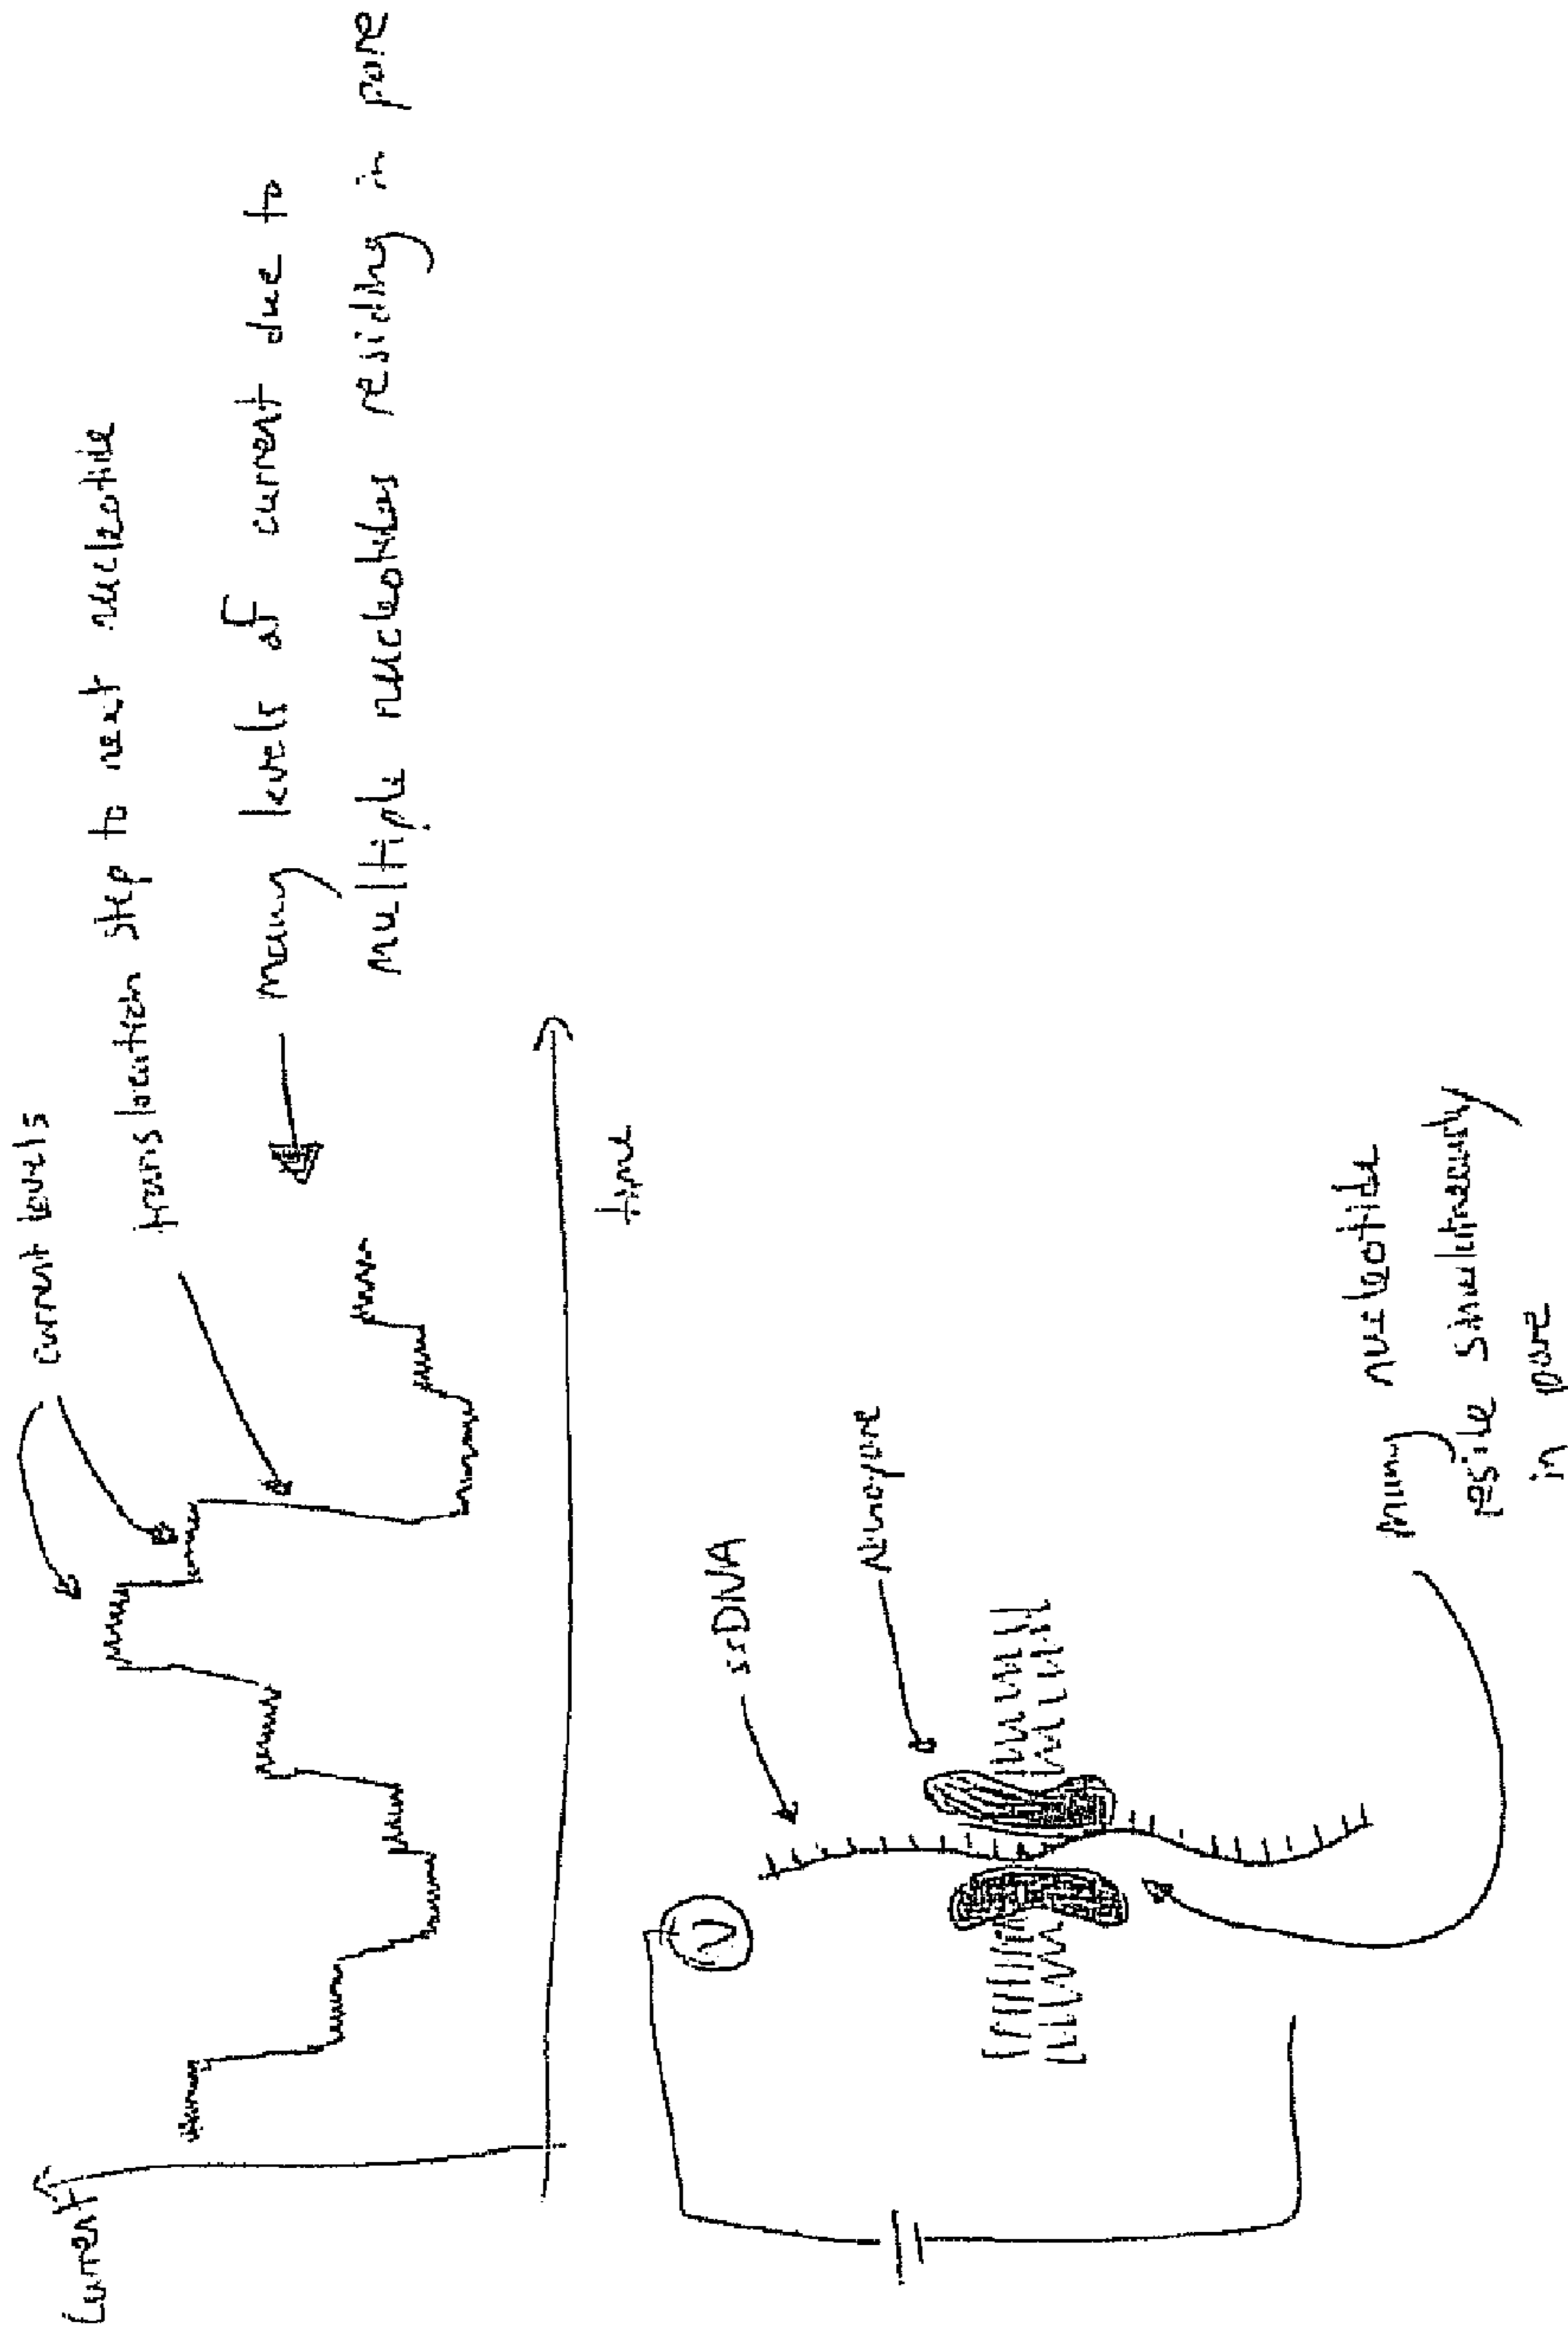 current levels
translocation step to next nucleotide
many levels of current due to
multiple nucleotides residing in pore
Current
time
ssDNA
Nanopore
many nucleotide
reside simultaneously
in pore